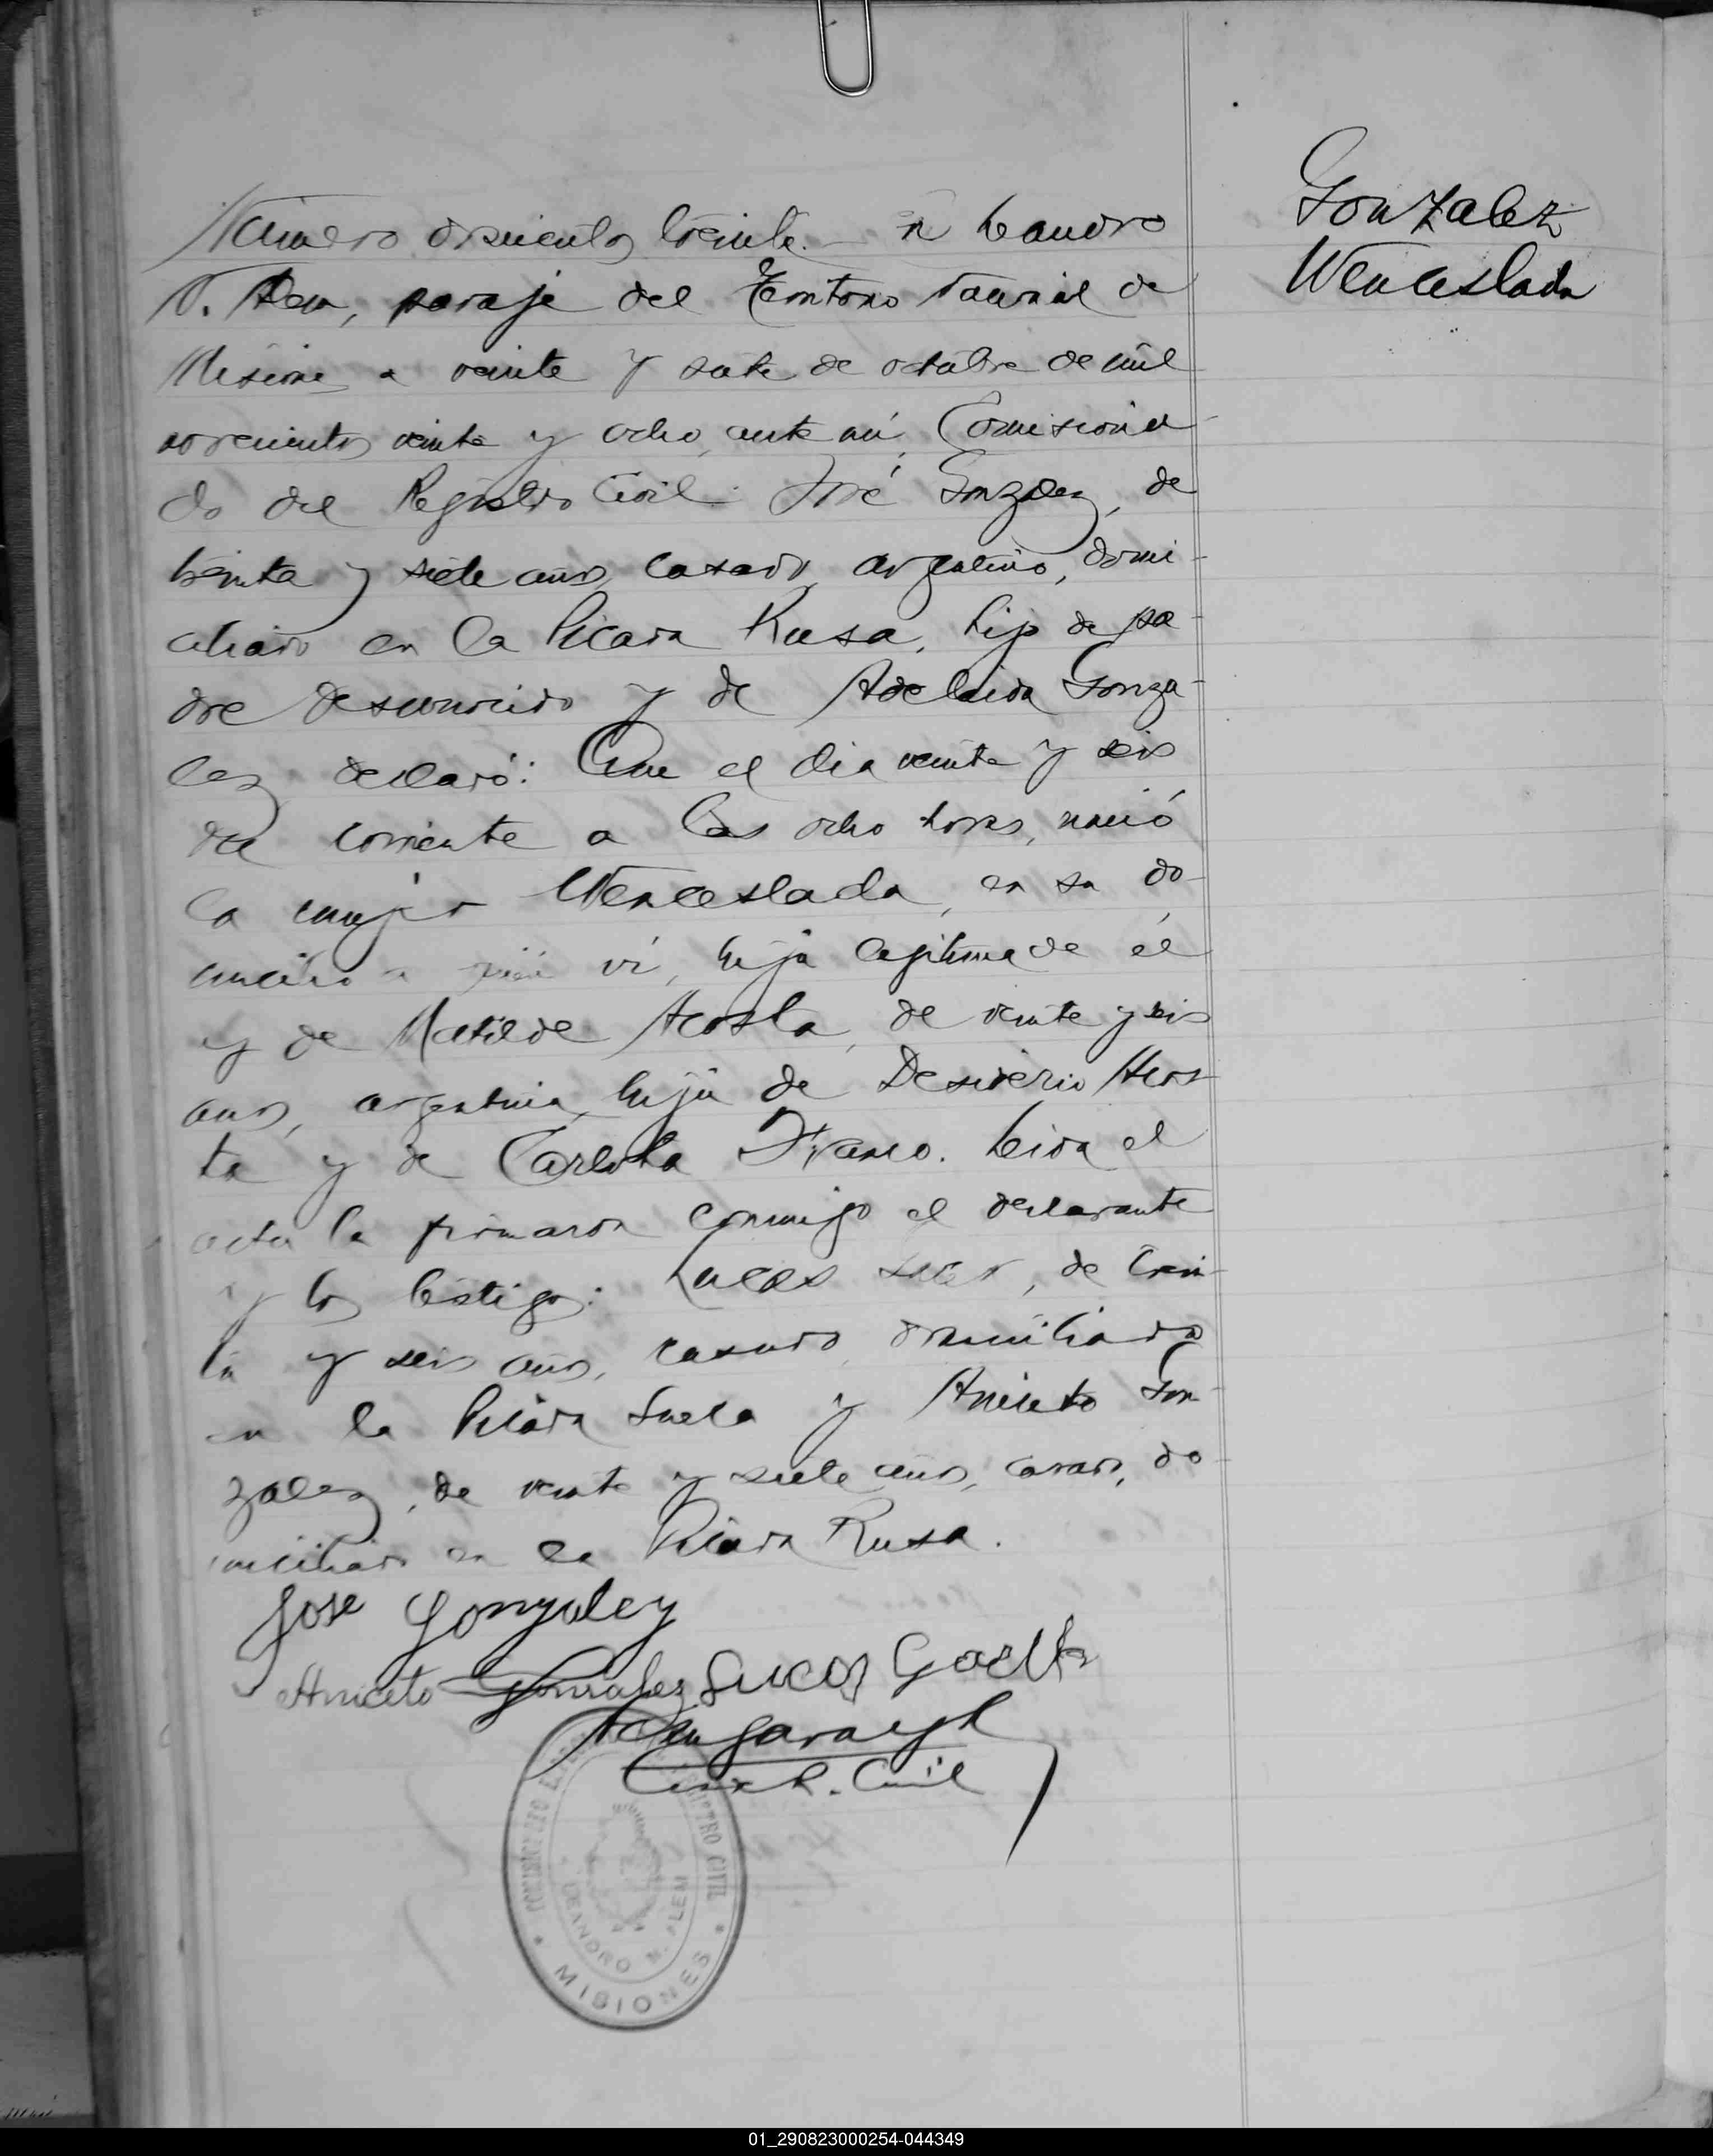 Número doscientos treinta. — En Leandro
N. Alem, paraje del Territorio Nacional de
Misiones a veinte y siete de octubre de mil
novecientos veinte y ocho, ante mí, Comisiona-
do del Registro Civil: José González, de
treinta y siete años, casado, argentino, domi-
ciliado en la Picada Rusa, hijo de pa-
dre desconocido y de Adelaida Gonza-
lez declaró: Que el dia veinte y seis
del corriente a las ocho horas, nació
la mujer Wenceslada, en su do-
micilio a quien vi, hija legitima de él
y de Matilde Acosta, de veinte y seis
años, argentina, hija de Desiderio Acos-
ta y de Carlota Franco. Leida el
acta la firmaron conmigo el declarante
y los testigos: Lucas, de trein-
ta y seis años, casado, domiciliado
en la Picada Sueca y Aniceto Gon-
zalez, de veinte y siete años, casado, do-
miciliado en la Picada Rusa.
Jose Gonzalez
Aniceto Gonzalez Lucas
R. Civil
REGISTRO CIVIL
LEANDRO N. ALEM
* MISIONES *
Gonzalez
Wenceslada
01_290823000254-044349